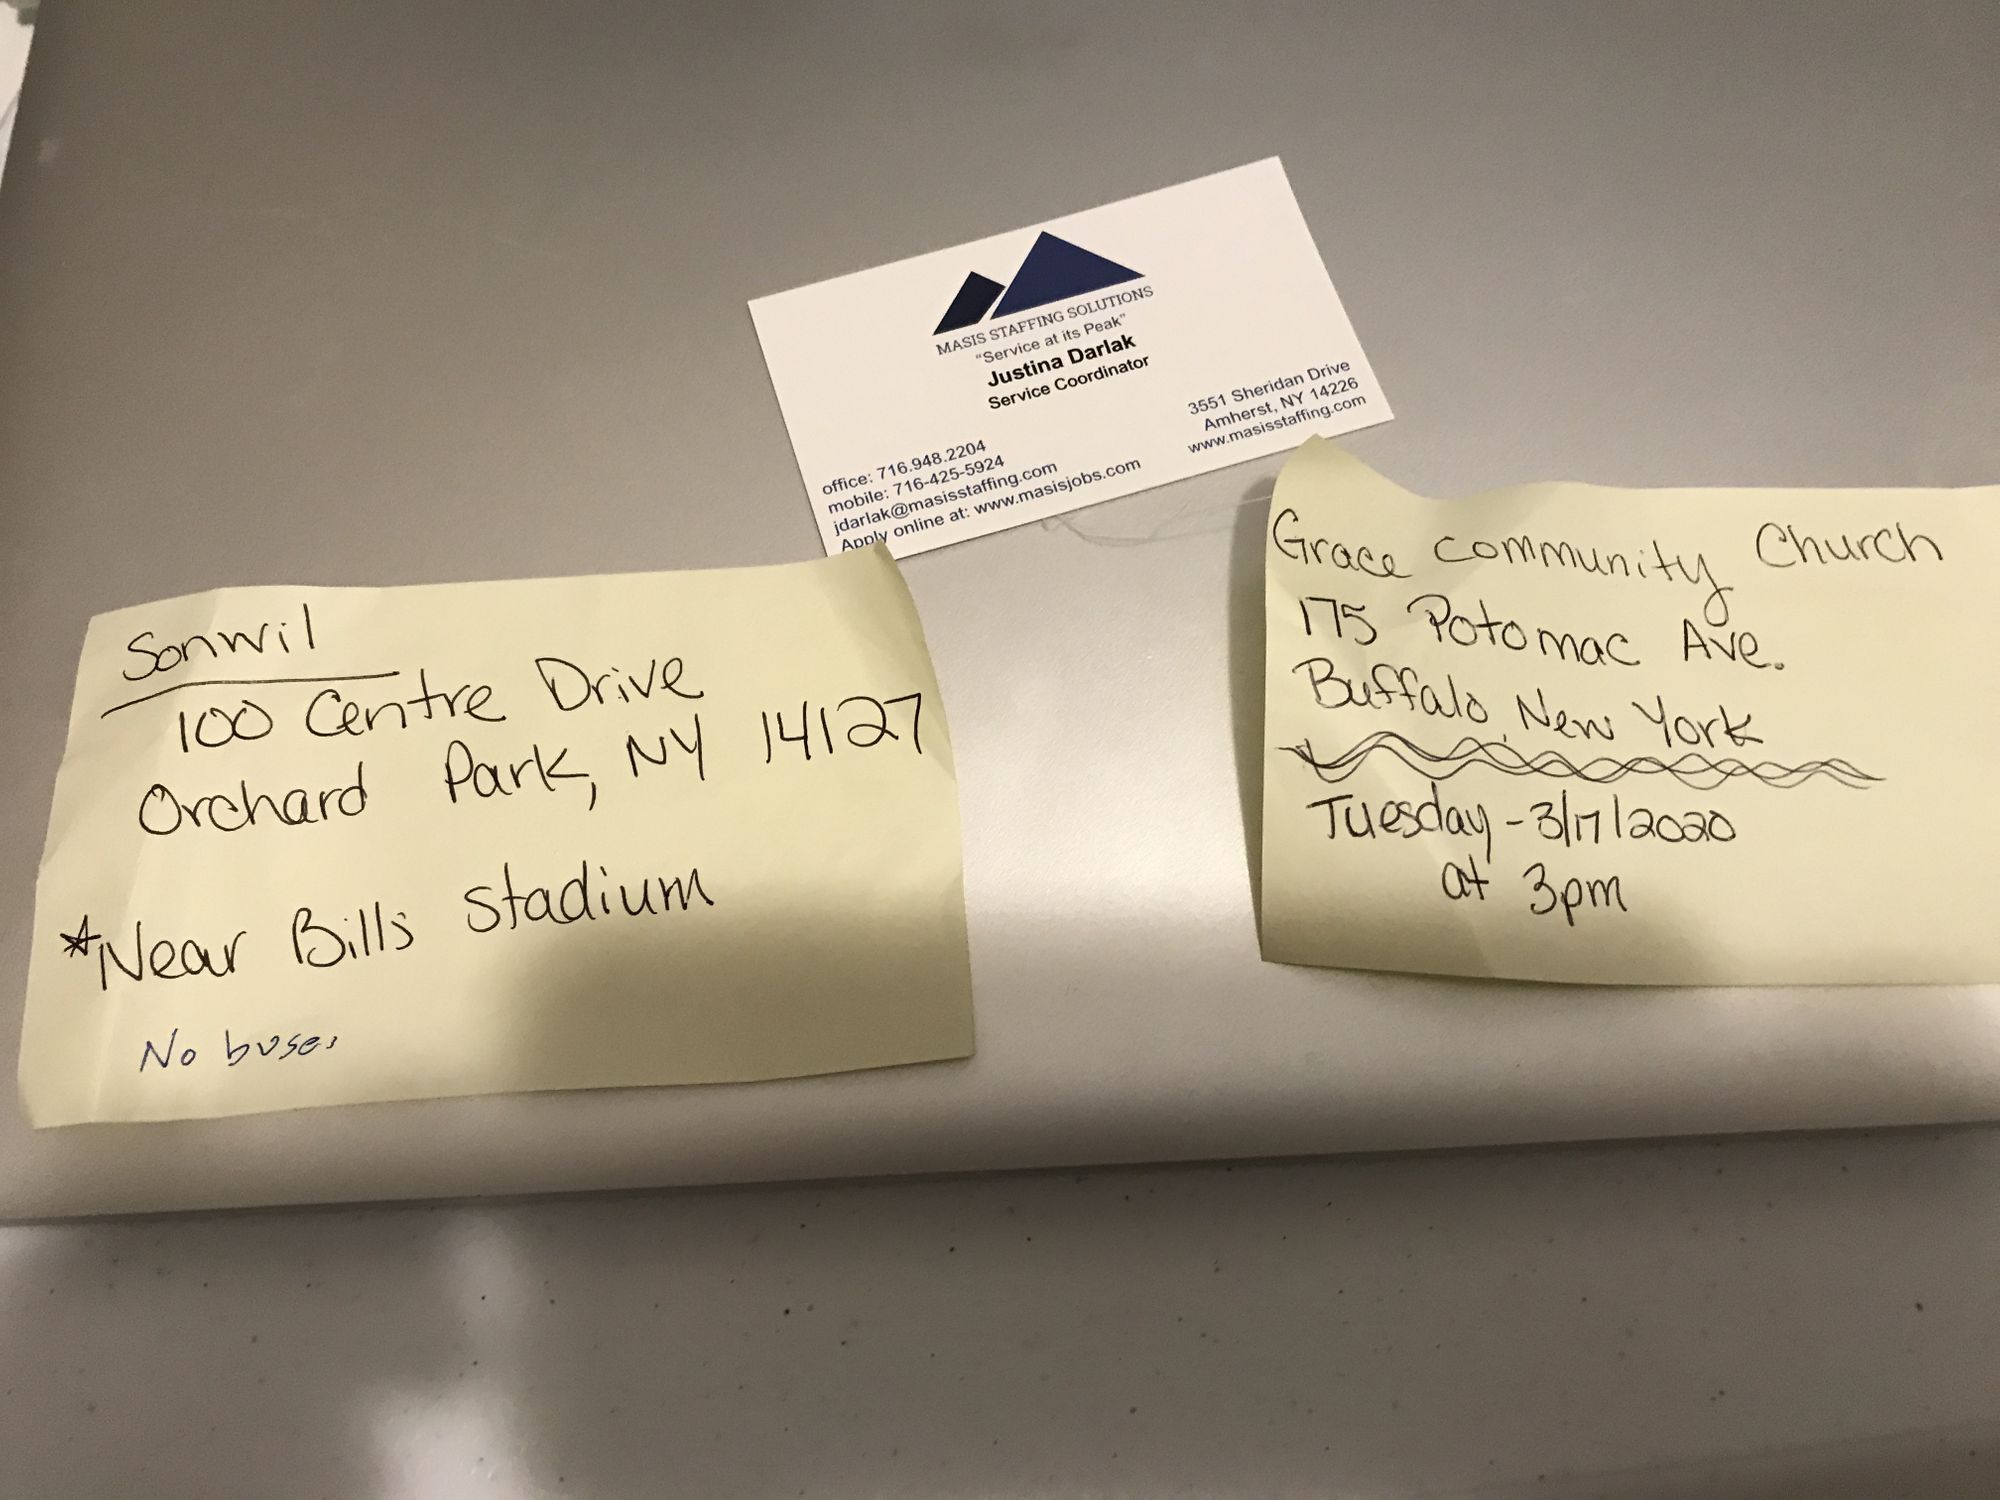 MASIS STAFFING SOLUTIONS
"Service at its Peak"
Justina Darlak
Service Coordinator
office: 716.948.2204
mobile: 716-425-5924
jdarlak@masisstaffing.com
Apply online at: www.masisjobs.com
3551 Sheridan Drive
Amherst, NY 14226
www.masisstaffing.com
Sonwil
100 Centre Drive
Orchard Park, NY 14127
*Near Bills Stadium
No buses
Grace Community Church
175 Potomac Ave.
Buffalo, New York
Tuesday - 3/17/2020
at 3pm